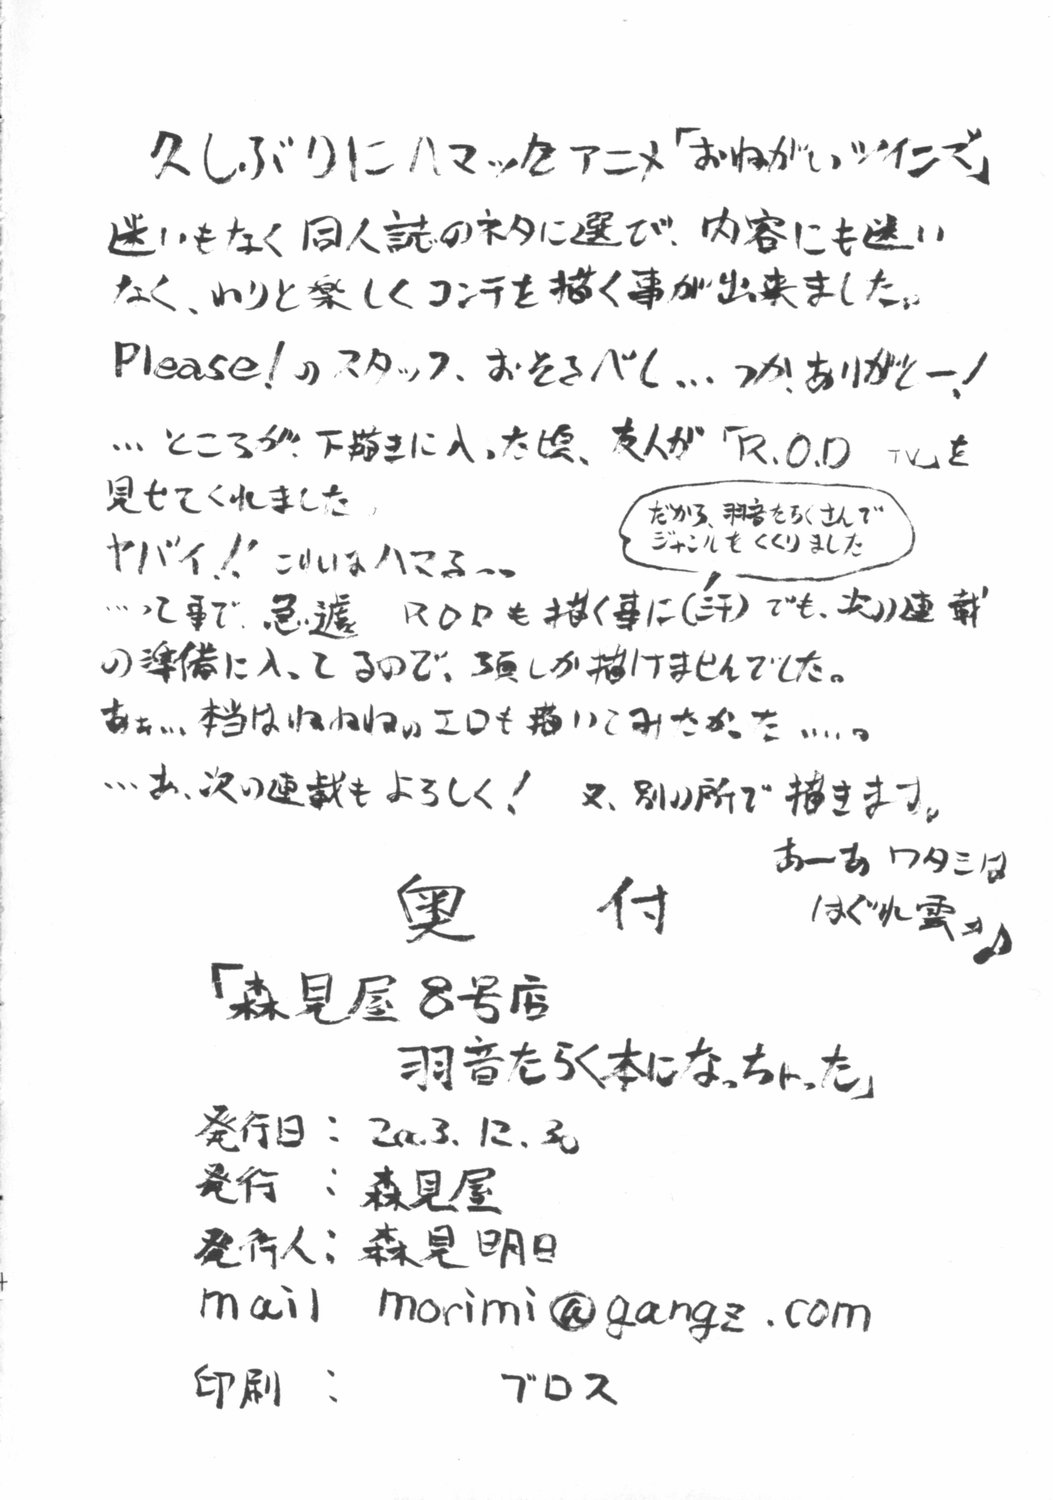 久しぶりにハマったアニメ「おねがいツインズ」
迷いもなく同人誌のネタに選び、内容にも迷い
なく、わりと楽しくコンテを描く事が出来ました。
Please!のスタッフ、おそるべし…つか、ありがとー!
…ところが、下描きに入った頃、友人が「R.O.D TV」を
見せてくれました。
ヤバイ!! こりゃハマる〜。
だから、羽音たらくさんで
ジャンルをくくりました
…って事で、急遽 RODも描く事に(汗) でも、次の連載
の準備に入ってるので、3頁しか描けませんでした。
あぁ…本当はねねねのエロも描いてみたかった……。
…あ、次の連載もよろしく! 又、別の所で描きます。
あーあ ワタシは
はぐれ雲ョ♪
奥 付
「森見屋8号店
羽音たらく本になっちゃった」
発行日: 2003.12.30
発行 : 森見屋
発行人: 森見明日
mail morimi@gangz.com
印刷 : ブロス